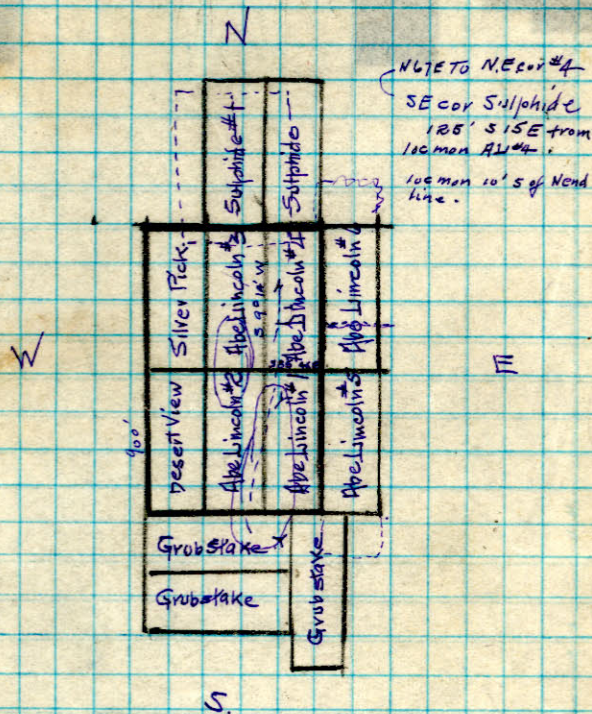 N
N67E TO N.E cor #4
SE cor Sulphide
125' S 15E from
loc mon AL #4.
loc mon 10' S of N end
line.
Sulphide #1
Sulphide
Silver Pick
Abe Lincoln #3
S 9° 12' W
Abe Lincoln #4
Abe Lincoln #6
W
E
900'
Desert View
Abe Lincoln #2
Abe Lincoln #1
Abe Lincoln #5
Grubstake
Grubstake
Grubstake
S